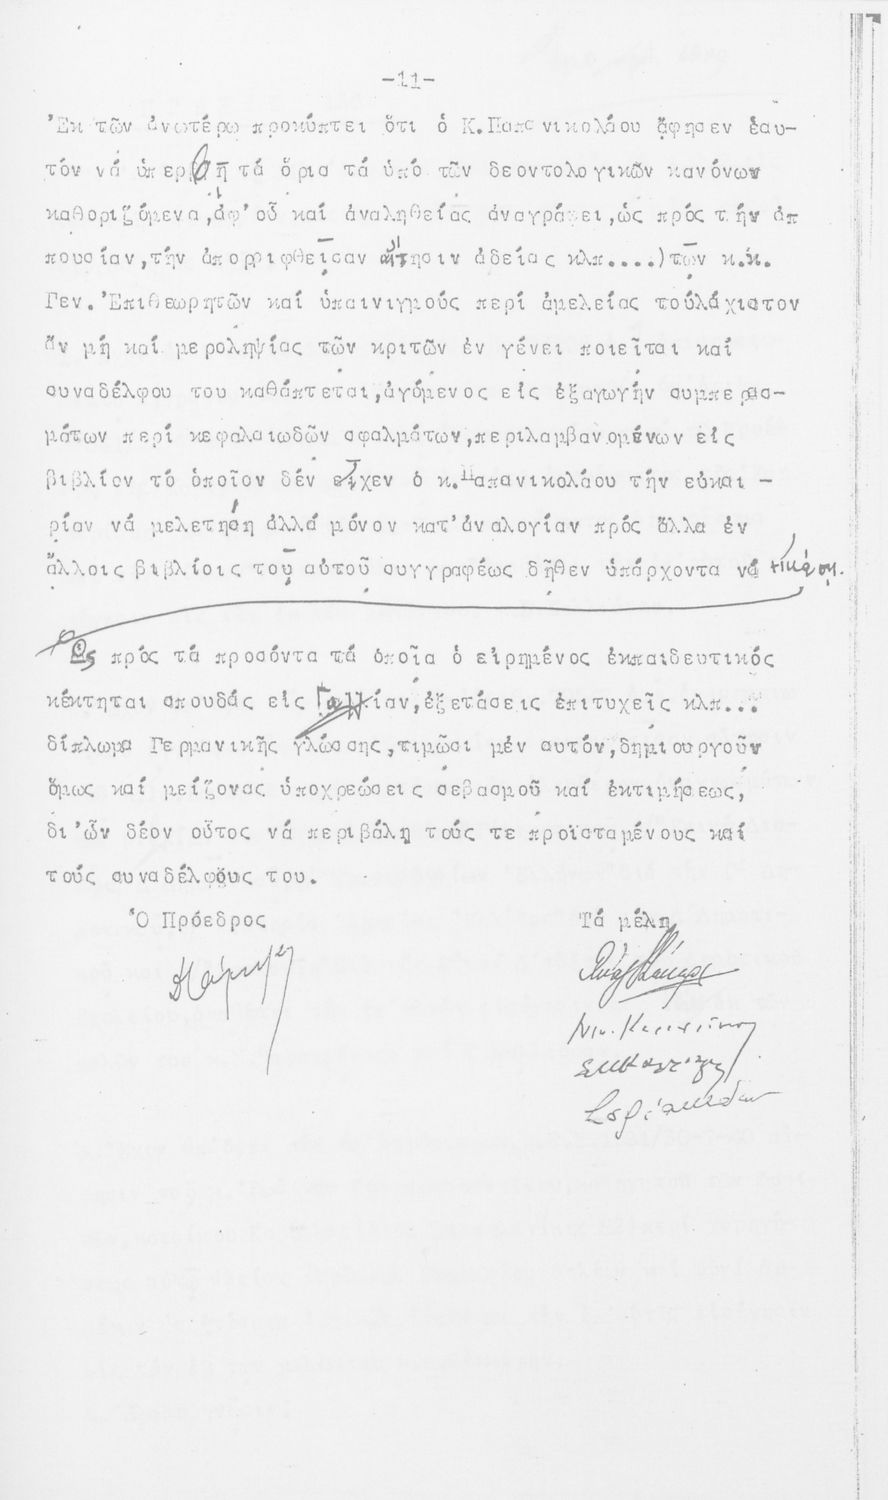 -11-
Ἐκ τῶν ἀνωτέρω προκύπτει ὅτι ὁ Κ.Παπανικολάου ἄφησεν ἑαυ-
τόν νά ὑπερβῆ τά ὅρια τά ὑπό τῶν δεοντολογικῶν κανόνων
καθοριζόμενα,ἀφ'οὗ καί ἀναληθείας ἀναγράφει,ὡς πρός τήν ἀπ
πουσίαν,τήν ἀπορριφθεῖσαν αἴτησιν ἀδείας κλπ....)τῶν κ.κ.
Γεν.Ἐπιθεωρητῶν καί ὑπαινιγμούς περί ἀμελείας τοὐλάχιστον
ἄν μή καί μεροληψίας τῶν κριτῶν ἐν γένει ποιεῖται καί
συναδέλφου του καθάπτεται,ἀγόμενος εἰς ἐξαγωγήν συμπερασ-
μάτων περί κεφαλαιωδῶν σφαλμάτων,περιλαμβανομένων εἰς
βιβλίον τό ὁποῖον δέν εἶχεν ὁ κ.Παπανικολάου τήν εὐκαι -
ρίαν νά μελετήση ἀλλά μόνον κατ'ἀναλογίαν πρός ἄλλα ἐν
ἄλλοις βιβλίοις τοῦ αὐτοῦ συγγραφέως δῆθεν ὑπάρχοντα νά
Ὡς πρός τά προσόντα τά ὁποῖα ὁ εἰρημένος ἐκπαιδευτικός
κέκτηται σπουδάς εἰς Γαλλίαν,ἐξετάσεις ἐπιτυχεῖς κλπ...
δίπλωμα Γερμανικῆς γλώσσης,τιμῶσι μέν αὐτόν,δημιουργοῦν
ὅμως καί μείζονας ὑποχρεώσεις σεβασμοῦ καί ἐκτιμήσεως,
δι'ὧν δέον οὗτος νά περιβάλη τούς τε προϊσταμένους καί
τούς συναδέλφους του.
Ὁ Πρόεδρος Τά μέλη